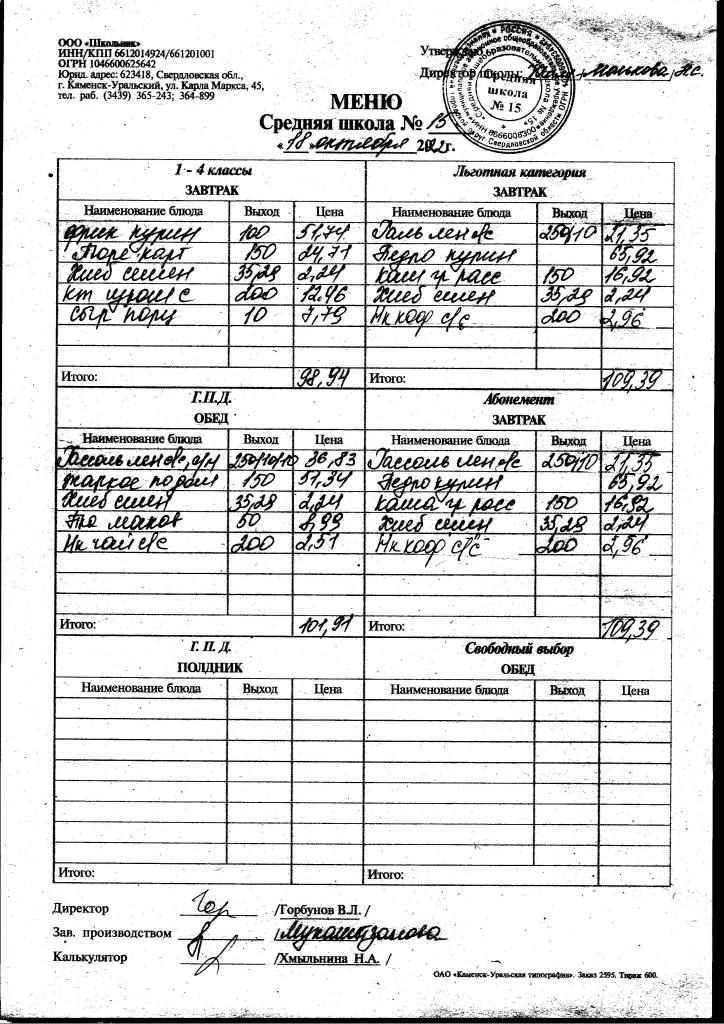 ООО «Школьник»
ИНН/КПП 6612014924/661201001
ОГРН 1046600625642
Юрид. адрес: 623418, Свердловская обл.,
г. Каменск-Уральский, ул. Карла Маркса, 45,
тел. раб. (3439) 365-243; 364-899
Утверждаю
Директор школы
Средняя школа № 15
МЕНЮ
Средняя школа № 15
«18» октября 2022г.
1 - 4 классы Льготная категория
ЗАВТРАК ЗАВТРАК
Наименование блюда Выход Цена Наименование блюда Выход Цена
фрик курин 100 51,74 250/10 21,35
Пюре карт 150 24,71 Бедро курин 65,92
Хлеб 35,28 2,24 Каш гр расс 150 16,92
200 12,96 Хлеб 35,28 2,24
сыр порц 10 7,79 Нк коф с/с 200 2,96
Итого: 98,94 Итого: 109,39
Г.П.Д. Абонемент
ОБЕД ЗАВТРАК
Наименование блюда Выход Цена Наименование блюда Выход Цена
Рассоль лен 250/10/10 36,83 Рассоль лен 250/10 21,35
жаркое по дом 150 51,34 Бедро курин 65,92
Хлеб 35,28 2,24 Каша гр расс 150 16,92
маков 50 8,99 Хлеб 35,28 2,24
Нк чай с/с 200 2,51 Нк коф с/с 200 2,96
Итого: 101,91 Итого: 109,39
Г. П. Д. Свободный выбор
ПОЛДНИК ОБЕД
Наименование блюда Выход Цена Наименование блюда Выход Цена
Итого: Итого:
Директор /Горбунов В.Л. /
Зав. производством
Калькулятор /Хмыльнина Н.А. /
ОАО «Каменск-Уральская типография». Заказ 2595. Тираж 600.